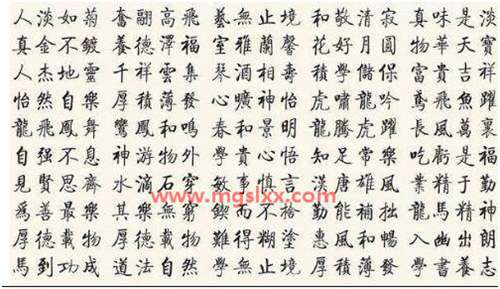 人淡如菊 奮翮高飛 藝無止境 和敬清寂 真味是淡
真金不鍍 養德澤福 室雅蘭馨 花好月圓 物華天寶
人杰地靈 千祥雲集 琴酒相壽 積學儲保 富貴吉祥
怡然自樂 厚積薄發 心曠神怡 虎嘯龍吟 鳶飛魚躍
龍飛鳳舞 鸞鳳和鳴 春和景明 龍騰虎躍 長風萬裏
自强不息 神游物外 學貴心悟 知足常樂 吃虧是福
見賢思齊 水滴石穿 敏事慎言 漢唐雄風 業精于勤
www.mgslxx.com
爲善最樂 其樂無窮 鍥而不捨 勤能補拙 龍馬精神
厚德載物 厚德載物 難得糊塗 惠風和暢 入幽出朗
馬到功成 道法自然 學無止境 厚積薄發 學書養志